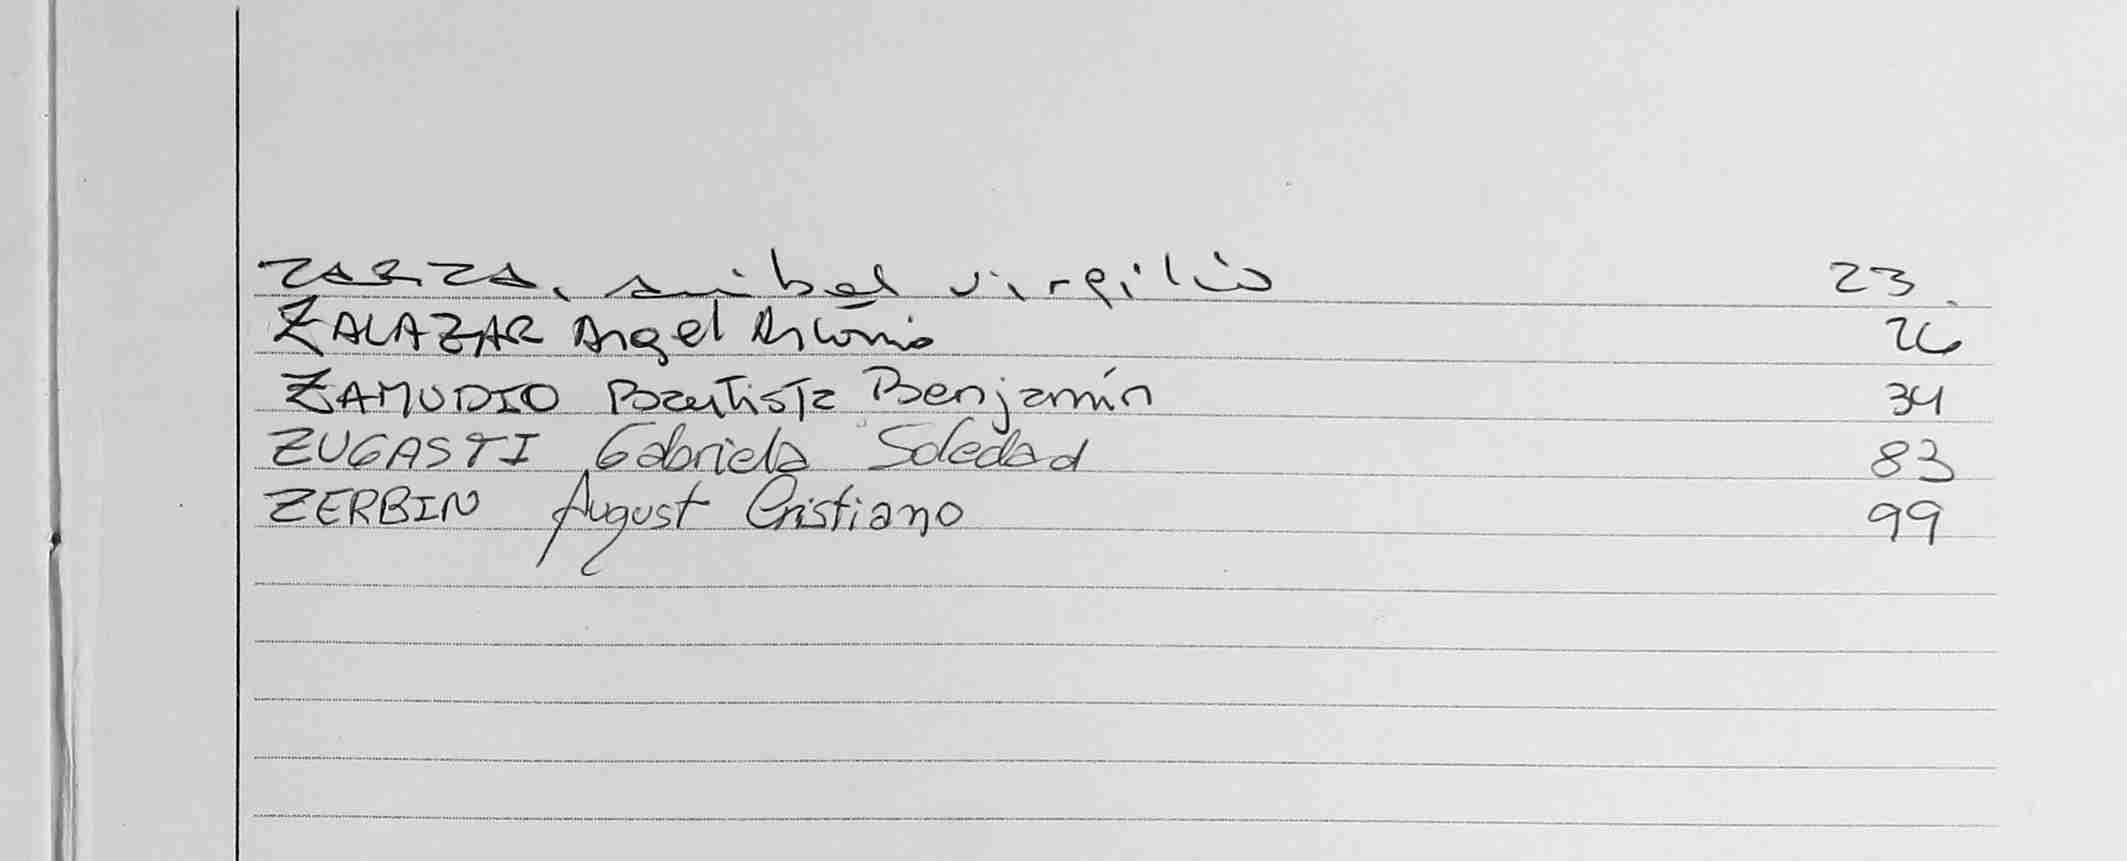 ZARZA, anibal virgilio 23.
ZALAZAR Angel Antonio 26
ZAMUDIO Bautista Benjamín 34
ZUGASTI Gabriela Soledad 83
ZERBIN August Cristiano 99